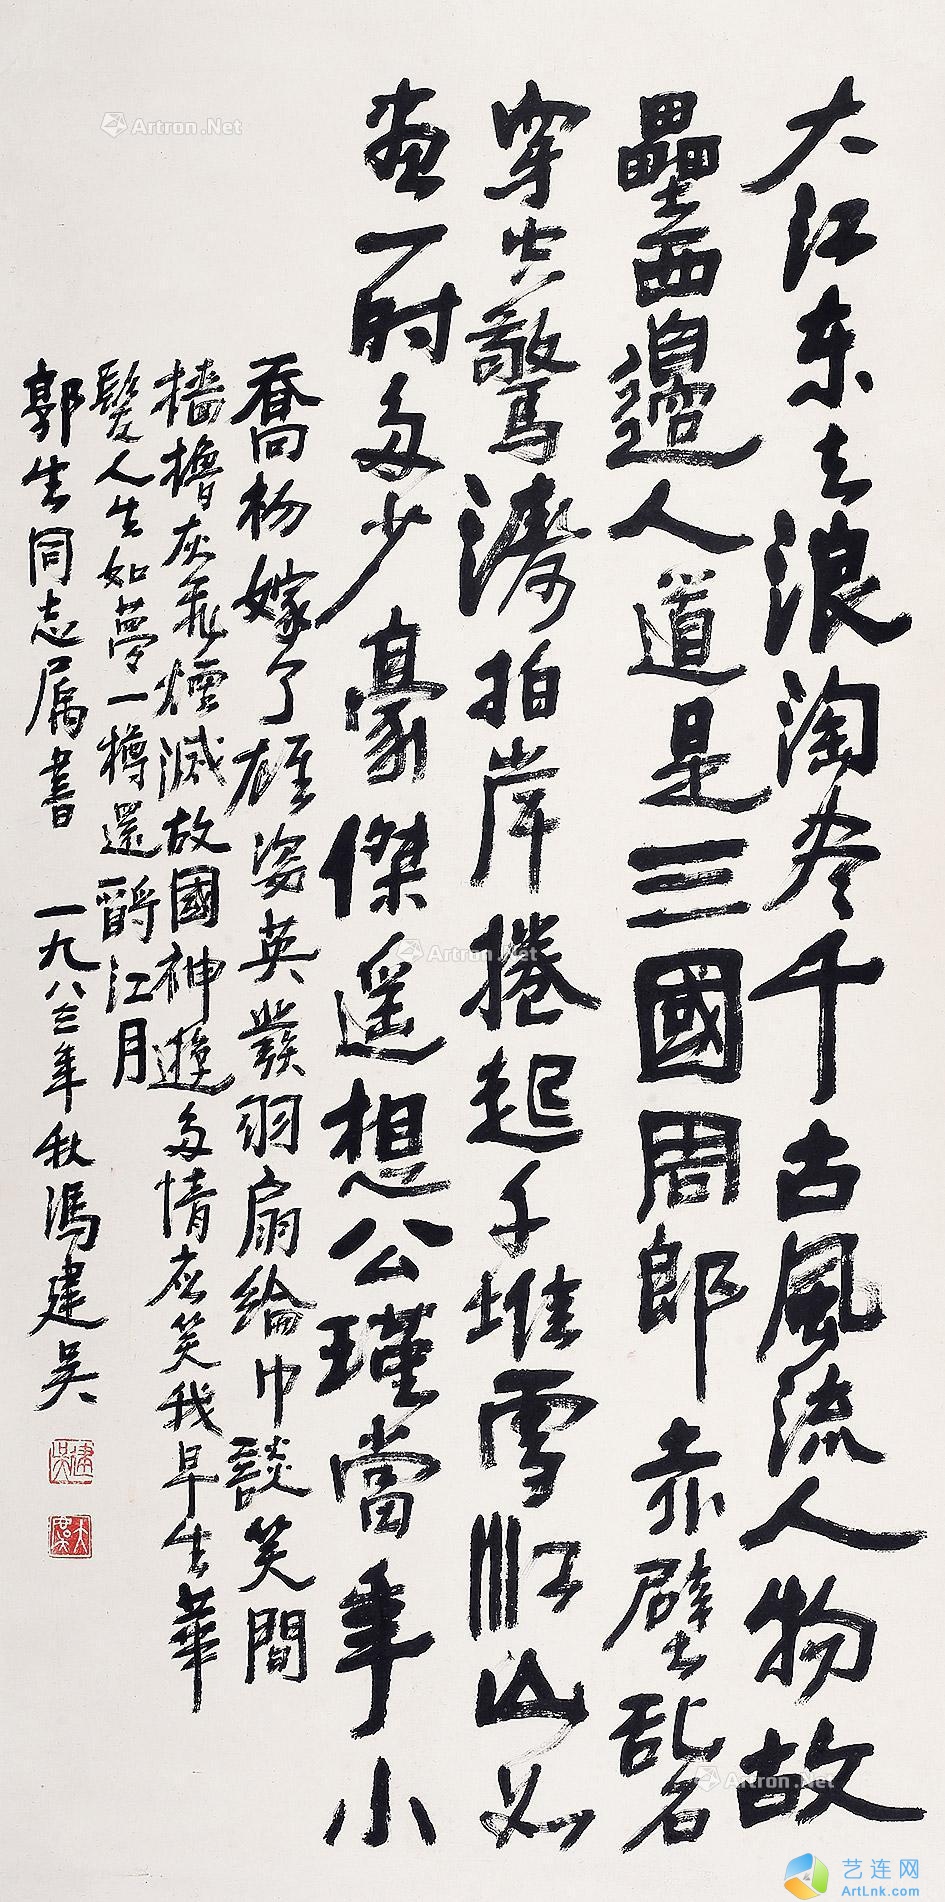 大江东去浪淘尽千古风流人物故
壘西邊人道是三國周郎赤壁乱石
穿空驚濤拍岸捲起千堆雪江山如
画一时多少豪傑遥想公瑾當年小
喬初嫁了雄姿英發羽扇綸巾談笑間
檣櫓灰飛煙滅故國神遊多情应笑我早生華
髮人生如夢一樽還酹江月
郭生同志属書 一九八三年秋馮建吴
建吴
Artron.Net
Artron.Net
Artron.Net
艺连网
ArtLnk.com